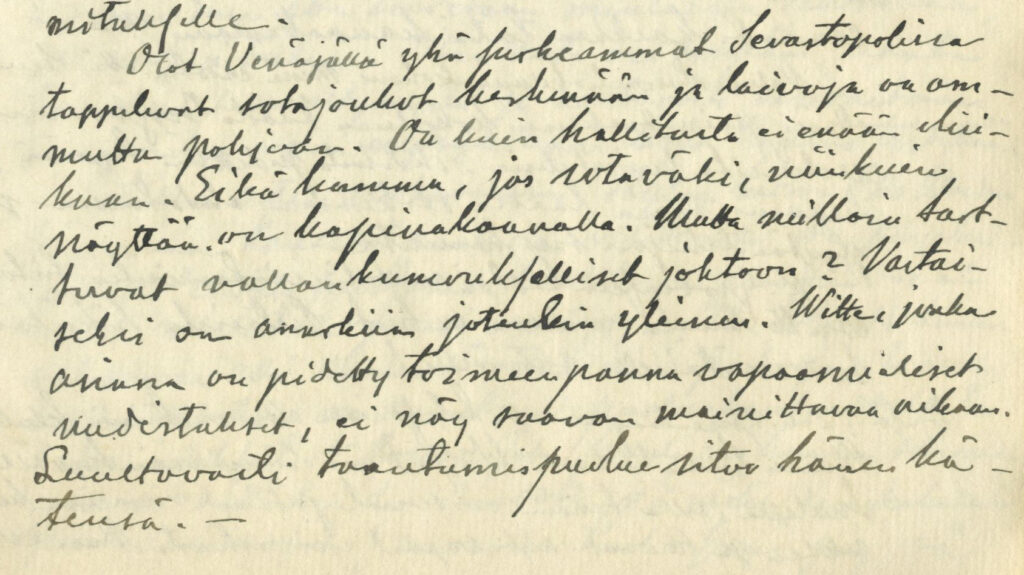 mituksille.
Olot Venäjällä yhä surkeammat. Sevastopolissa
tappelevat sotajoukot keskenään ja laivoja on am-
muttu pohjaan. On kuin hallitusta ei enään olisi-
kaan. Eikä kumma, jos sotaväki, niinkuin
näyttää, on kapinakannalla. Mutta milloin tart-
tuvat vallankumoukselliset johtoon? Vastai-
seksi on anarkiia jotenkin yleinen. Witte, jonka
asiana on pidetty toimeenpanna vapaamieliset
uudistukset, ei näy saavan mainittavaa aikaan.
Luultavasti taantumispuolue sitoo hänen kä-
tensä. —